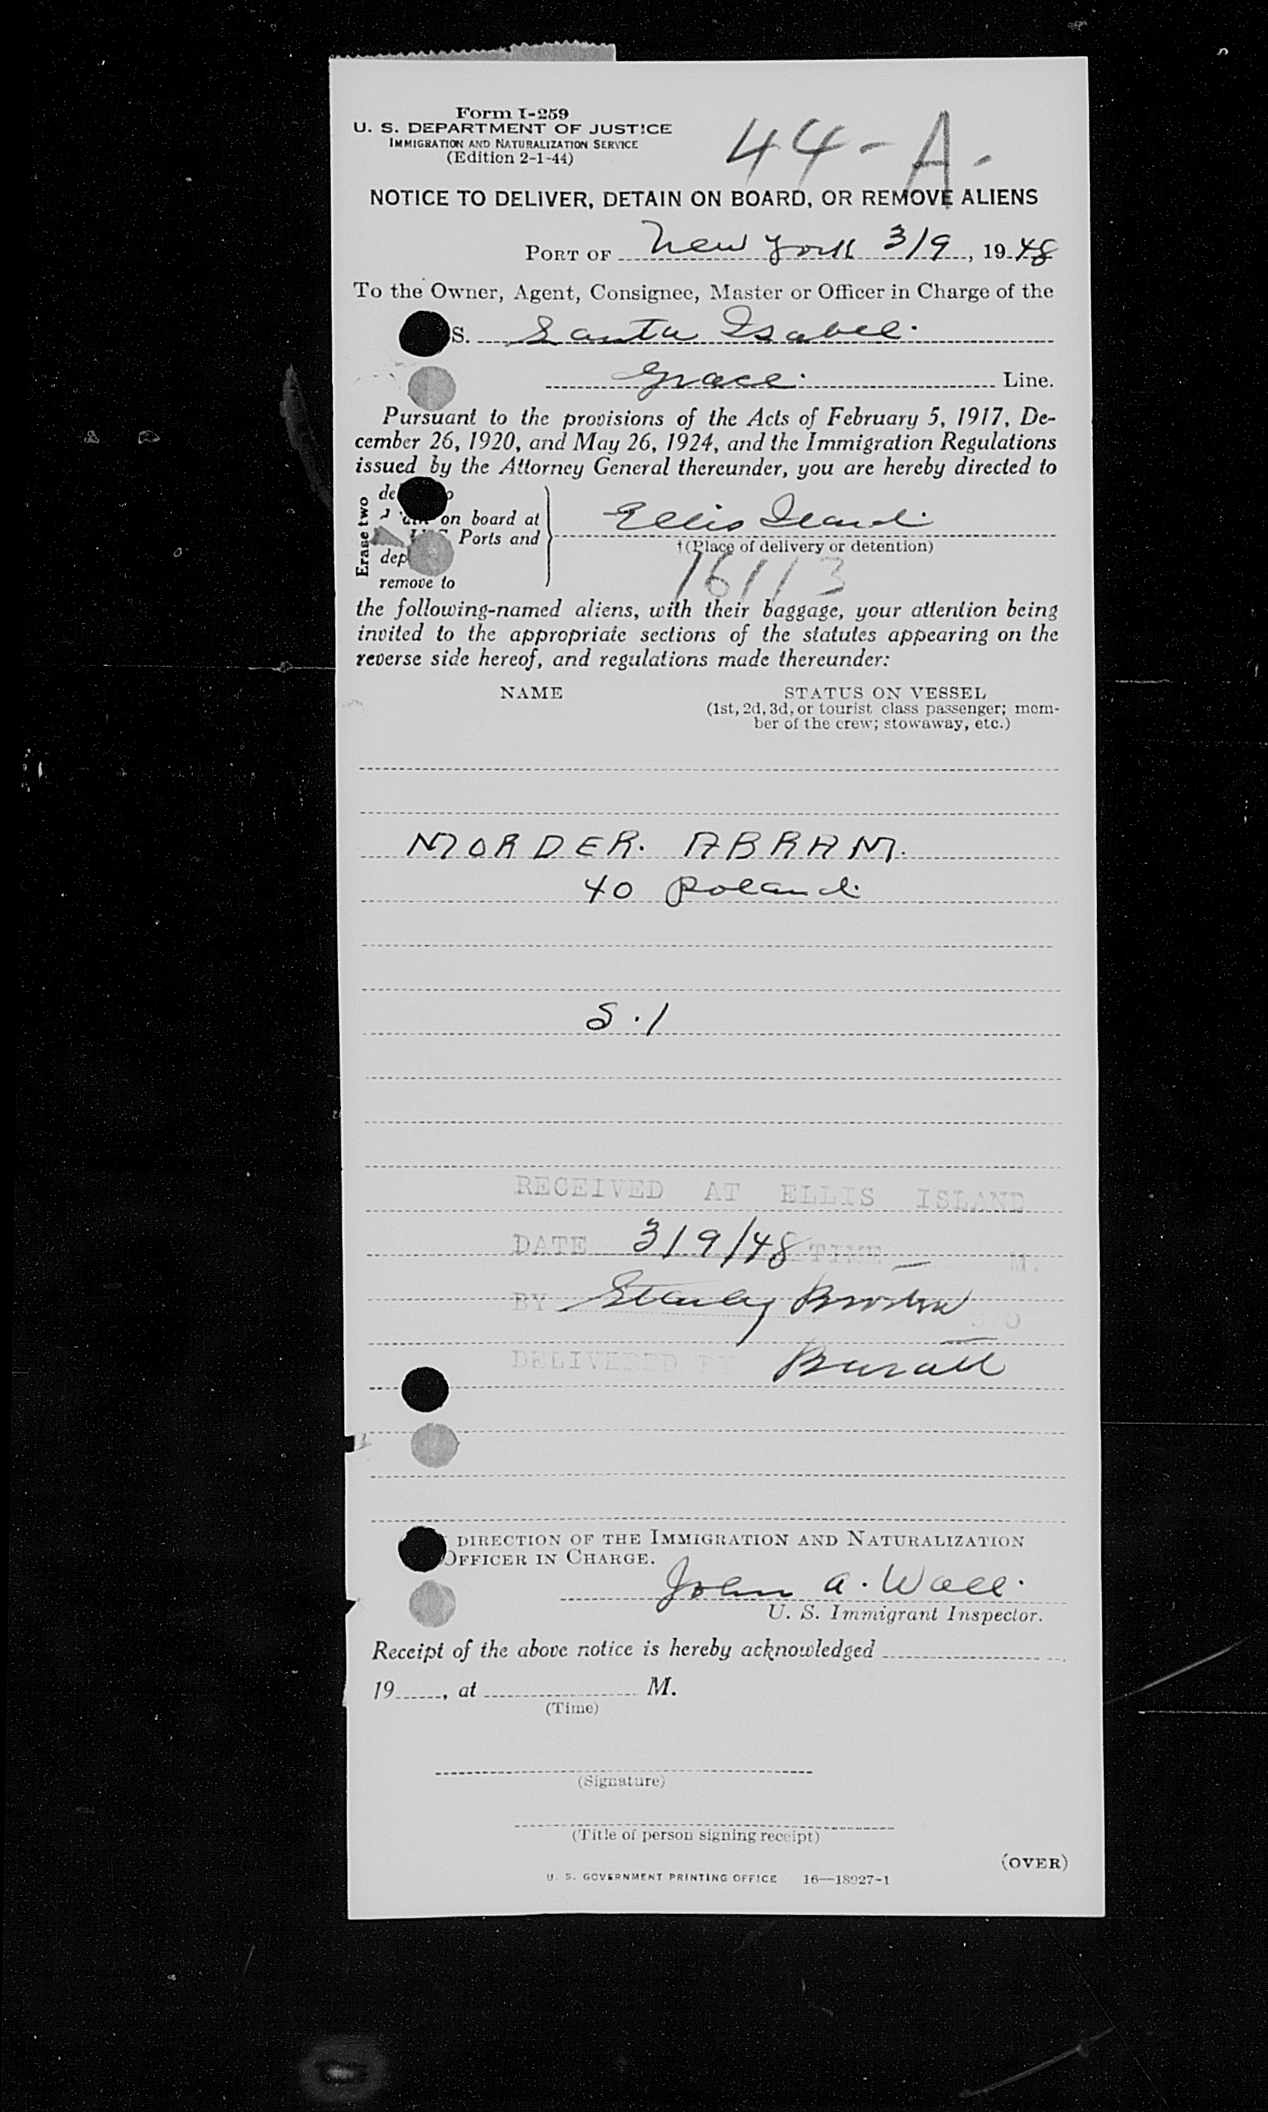 Form I-259
U. S. DEPARTMENT OF JUSTICE
IMMIGRATION AND NATURALIZATION SERVICE
(Edition 2-1-44)
44-A-
NOTICE TO DELIVER, DETAIN ON BOARD, OR REMOVE ALIENS
PORT OF New York 3/9, 1948
To the Owner, Agent, Consignee, Master or Officer in Charge of the
S. Santa Isabel.
Grace. Line.
Pursuant to the provisions of the Acts of February 5, 1917, De-
cember 26, 1920, and May 26, 1924, and the Immigration Regulations
issued by the Attorney General thereunder, you are hereby directed to
Erase two
on board at
Ports and
remove to
Ellis Island
†(Place of delivery or detention)
16113
the following-named aliens, with their baggage, your attention being
invited to the appropriate sections of the statutes appearing on the
reverse side hereof, and regulations made thereunder:
NAME STATUS ON VESSEL
(1st, 2d, 3d, or tourist class passenger; mem-
ber of the crew; stowaway, etc.)
MORDER. ABRAM.
40 Poland.
S.I
RECEIVED AT ELLIS ISLAND
DATE 3/9/48 TIME — M.
BY Stanley
DELIVERED BY
DIRECTION OF THE IMMIGRATION AND NATURALIZATION
OFFICER IN CHARGE.
John A. Wall.
U. S. Immigrant Inspector.
Receipt of the above notice is hereby acknowledged
19, at M.
(Time)
(Signature)
(Title of person signing receipt)
(OVER)
U. S. GOVERNMENT PRINTING OFFICE 16—18927-1